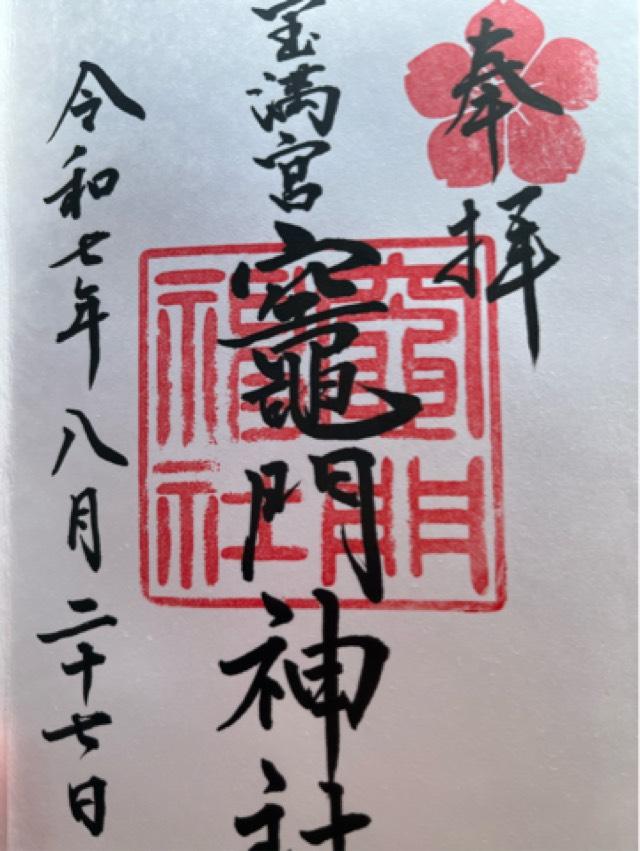 奉拝
宝満宮
竈門神社
竈門神社
令和七年八月二十七日